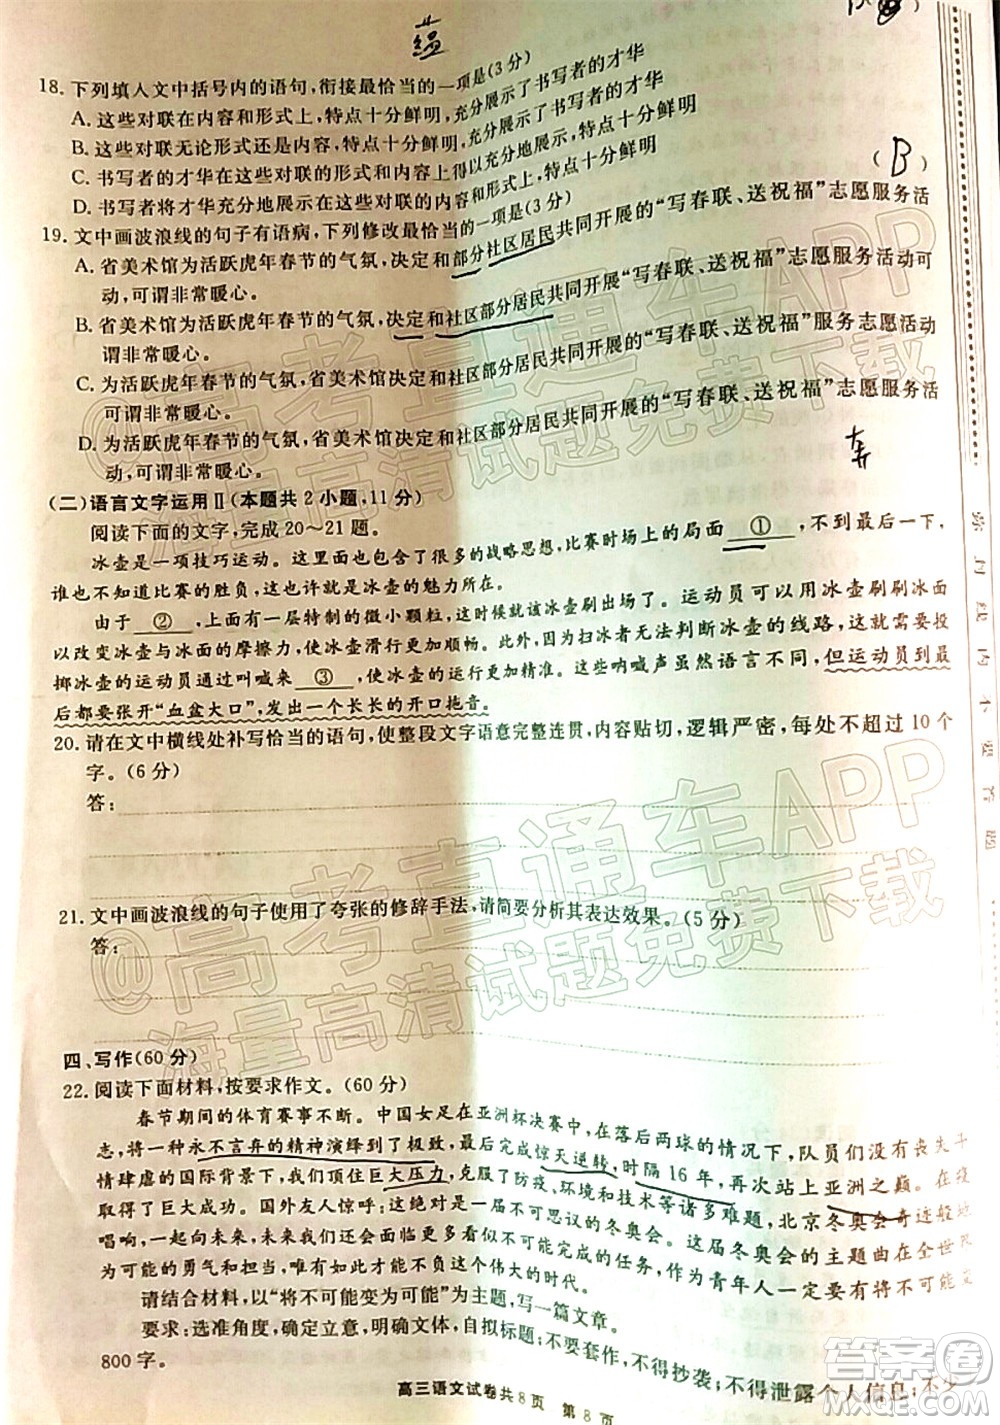 蕴
18. 下列填入文中括号内的语句,衔接最恰当的一项是(3分)
A. 这些对联在内容和形式上,特点十分鲜明,充分展示了书写者的才华
B. 这些对联无论形式还是内容,特点十分鲜明,充分展示了书写者的才华
C. 书写者的才华在这些对联的内容和形式上得以充分地展示,特点十分鲜明
D. 书写者将才华充分地展示在这些对联的内容和形式上,特点十分鲜明
19. 文中画波浪线的句子有语病,下列修改最恰当的一项是(3分)
(B)
A. 省美术馆为活跃虎年春节的气氛,决定和部分社区居民共同开展的“写春联、送祝福”志愿服务活
动,可谓非常暖心。
B. 省美术馆为活跃虎年春节的气氛,决定和社区部分居民共同开展的“写春联、送祝福”志愿服务活动可
谓非常暖心。
C. 为活跃虎年春节的气氛,省美术馆决定和社区部分居民共同开展的“写春联、送祝福”服务志愿活动
可谓非常暖心。
D. 为活跃虎年春节的气氛,省美术馆决定和社区部分居民共同开展的“写春联、送祝福”志愿服务活
动,可谓非常暖心。
弃
(二)语言文字运用Ⅱ(本题共2小题,11分)
阅读下面的文字,完成20~21题。
冰壶是一项技巧运动。这里面包含了很多的战略思想,比赛时场上的局面 ① ,不到最后一下,
谁也不知道比赛的胜负,这也许就是冰壶的魅力所在。
由于 ② 上有一层特制的微小颗粒,这时候就该冰壶刷出场了。运动员可以用冰壶刷刷冰面
以改变冰壶与冰面的摩擦力,使冰壶滑行更加顺畅。此外,因为扫冰者无法判断冰壶的线路,所以需要
掷冰壶的运动员通过叫喊来 ③ ,使冰壶的运行更加精准。这些呐喊声虽然语言不同,但运动员到最
后都要张开“血盆大口”,发出一个长长的开口拖音。
20. 请在文中横线处补写恰当的语句,使整段文字语意完整连贯,内容贴切,逻辑严密,每处不超过10个
字。(6分)
答:
21. 文中画波浪线的句子使用了夸张的修辞手法,请简要分析其表达效果。(5分)
答:
四、写作(60分)
22. 阅读下面材料,按要求作文。(60分)
春节期间的体育赛事不断。中国女足在亚洲杯决赛中,在落后两球的情况下,队员们没有丧失斗
志,将一种永不言弃的精神演绎到了极致,最后完成惊天逆转,时隔16年,再次站上亚洲之巅。在疫
情肆虐的国际背景下,我们顶住巨大压力,克服了防疫、环境和技术等诸多难题,北京冬奥会奇迹般地
取得了巨大成功。国外友人惊呼:这真是一届不可思议的奥运会。这届冬奥会的主题曲在全世界
唱响,一起向未来,向未来的我们去完成看似不可能完成的任务。作为青年人一定要有将不可能变
为可能的勇气和担当,唯有如此才能无愧于这个伟大的时代。
请结合材料,以“将不可能变为可能”为主题,写一篇文章。
要求:选准角度,确定立意,明确文体,自拟标题;不要套作,不得抄袭;不得泄露个人信息;不少
800字。
高三语文试卷共8页 第8页
弥封线内不要答题
@高考直通车APP
海量高清试题免费下载
@高考直通车APP
海量高清试题免费下载
答案圈
MXQE.COM